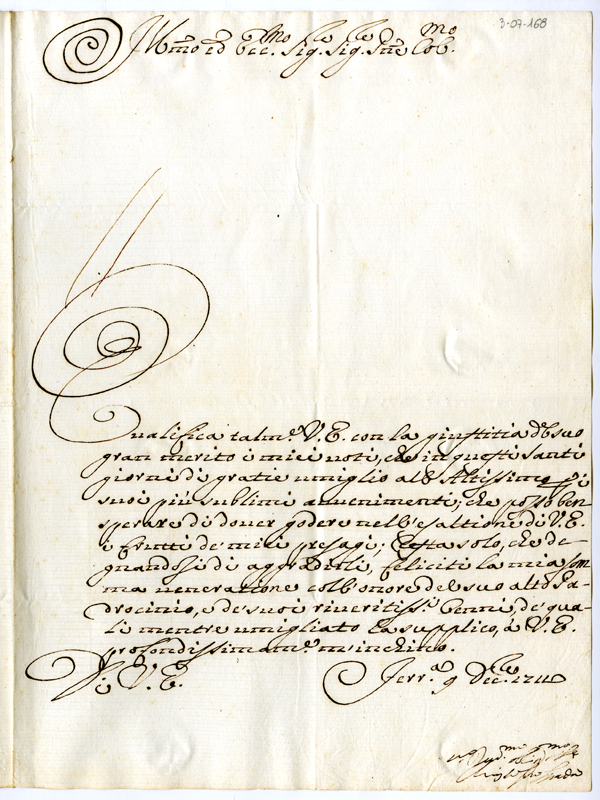 3-07-168
Ill.mo ed Ecc.mo Sig.re Sig.re P.ne Col.mo
Qualifica talm.e V. E. con la giustitia del suo
gran merito i miei voti, che in questi santi
giorni di gratie umiglio all'Altissimo p i
suoi più sublimi avvenimenti; che posso ben
sperare di dover godere nell'esaltione di V. E.
i frutti de miei presagi; Resta solo, che de
gnandosi di aggradirli, feliciti la mia som
ma veneratione coll'onore del suo alto Pa-
drocinio, e de suoi riveritiss.i Cenni, de qua-
li mentre umigliato la supplico, à V. E.
profondissimam.e m'inchino.
Di V. E.
Ferr.a 9 Dec.bre 1711